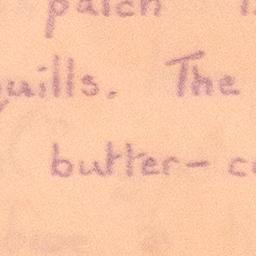 patch
quills. The
butter-